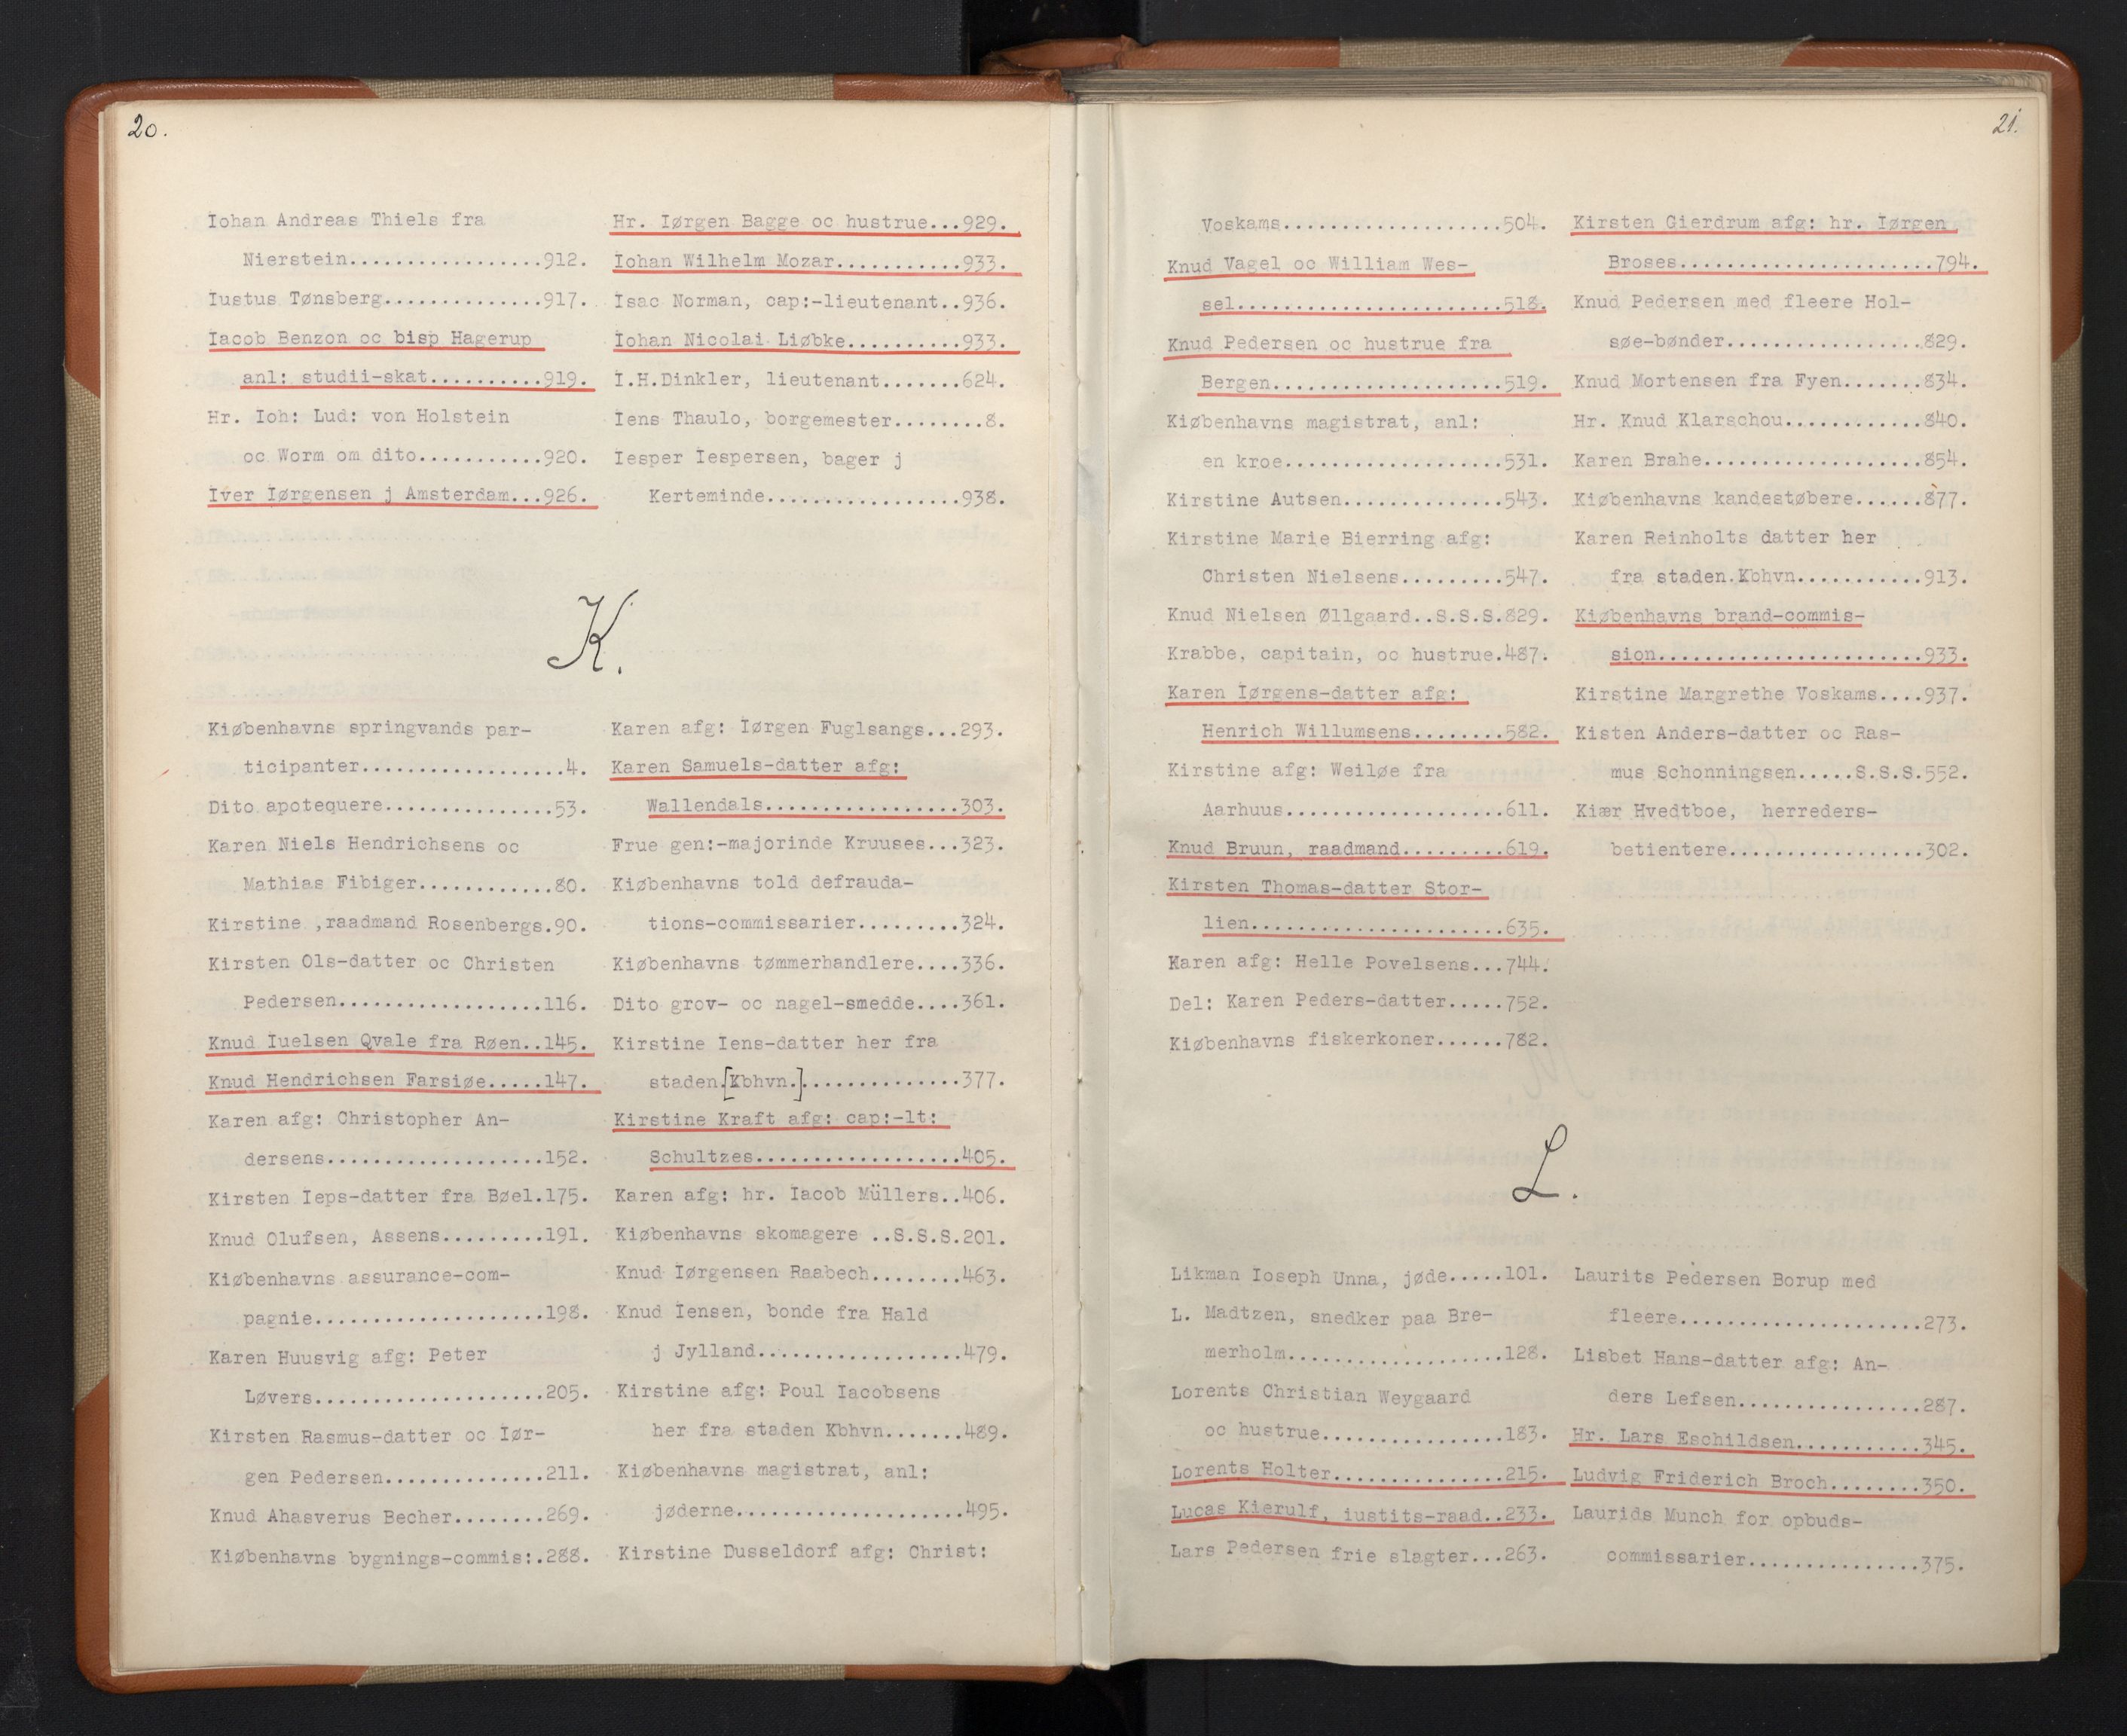 20.
Iohan Andreas Thiels fra
Nierstein.................912.
Iustus Tønsberg..............917.
Iacob Benzon oc bisp Hagerup
anl: studii-skat..........919.
Hr. Ioh: Lud: von Holstein
oc Worm om dito...........920.
Iver Iørgensen j Amsterdam...926.
Hr. Iørgen Bagge oc hustrue...929.
Iohan Wilhelm Mozar...........933.
Isac Norman, cap:-lieutenant..936.
Iohan Nicolai Liøbke..........933.
I.H.Dinkler, lieutenant.......624.
Iens Thaulo, borgemester........8.
Iesper Iespersen, bager j
Kerteminde.................938.
K.
Kiøbenhavns springvands par-
ticipanter..................4.
Dito apotequere...............53.
Karen Niels Hendrichsens oc
Mathias Fibiger............80.
Kirstine ,raadmand Rosenbergs.90.
Kirsten Ols-datter oc Christen
Pedersen..................116.
Knud Iuelsen Qvale fra Røen..145.
Knud Hendrichsen Farsiøe.....147.
Karen afg: Christopher An-
dersens...................152.
Kirsten Ieps-datter fra Bøel.175.
Knud Olufsen, Assens.........191.
Kiøbenhavns assurance-com-
pagnie....................198.
Karen Huusvig afg: Peter
Løvers....................205.
Kirsten Rasmus-datter oc Iør-
gen Pedersen..............211.
Knud Ahasverus Becher........269.
Kiøbenhavns bygnings-commis:.288.
Karen afg: Iørgen Fuglsangs...293.
Karen Samuels-datter afg:
Wallendals.................303.
Frue gen:-majorinde Kruuses...323.
Kiøbenhavns told defrauda-
tions-commissarier.........324.
Kiøbenhavns tømmerhandlere....336.
Dito grov- oc nagel-smedde....361.
Kirstine Iens-datter her fra
staden.[Kbhvn.]..............377.
Kirstine Kraft afg: cap:-lt:
Schultzes..................405.
Karen afg: hr. Iacob Müllers..406.
Kiøbenhavns skomagere ..S.S.S.201.
Knud Iørgensen Raabech........463.
Knud Iensen, bonde fra Hald
j Jylland..................479.
Kirstine afg: Poul Iacobsens
her fra staden Kbhvn.......489.
Kiøbenhavns magistrat, anl:
jøderne....................495.
Kirstine Dusseldorf afg: Christ:
21.
Voskams...................504.
Knud Vagel oc William Wes-
sel.......................518.
Knud Pedersen oc hustrue fra
Bergen....................519.
Kiøbenhavns magistrat, anl:
en kroe...................531.
Kirstine Autsen..............543.
Kirstine Marie Bierring afg:
Christen Nielsens.........547.
Knud Nielsen Øllgaard..S.S.S.829.
Krabbe, capitain, oc hustrue.487.
Karen Iørgens-datter afg:
Henrich Willumsens........582.
Kirstine afg: Weiløe fra
Aarhuus...................611.
Knud Bruun, raadmand.........619.
Kirsten Thomas-datter Stor-
lien......................635.
Karen afg: Helle Povelsens...744.
Del: Karen Peders-datter.....752.
Kiøbenhavns fiskerkoner......782.
Kirsten Gierdrum afg: hr. Iørgen
Broses......................794.
Knud Pedersen med fleere Hol-
søe-bønder.................829.
Knud Mortensen fra Fyen.......834.
Hr. Knud Klarschou............840.
Karen Brahe...................854.
Kiøbenhavns kandestøbere......877.
Karen Reinholts datter her
fra staden.Kbhvn...........913.
Kiøbenhavns brand-commis-
sion.......................933.
Kirstine Margrethe Voskams....937.
Kisten Anders-datter oc Ras-
mus Schonningsen.....S.S.S.552.
Kiær Hvedtboe, herreders-
betientere.................302.
L.
Likman Ioseph Unna, jøde.....101.
L. Madtzen, snedker paa Bre-
merholm...................128.
Lorents Christian Weygaard
oc hustrue................183.
Lorents Holter...............215.
Lucas Kierulf, iustits-raad..233.
Lars Pedersen frie slagter...263.
Laurits Pedersen Borup med
fleere.....................273.
Lisbet Hans-datter afg: An-
ders Lefsen................287.
Hr. Lars Eschildsen...........345.
Ludvig Friderich Broch........350.
Laurids Munch for opbuds-
commissarier...............375.